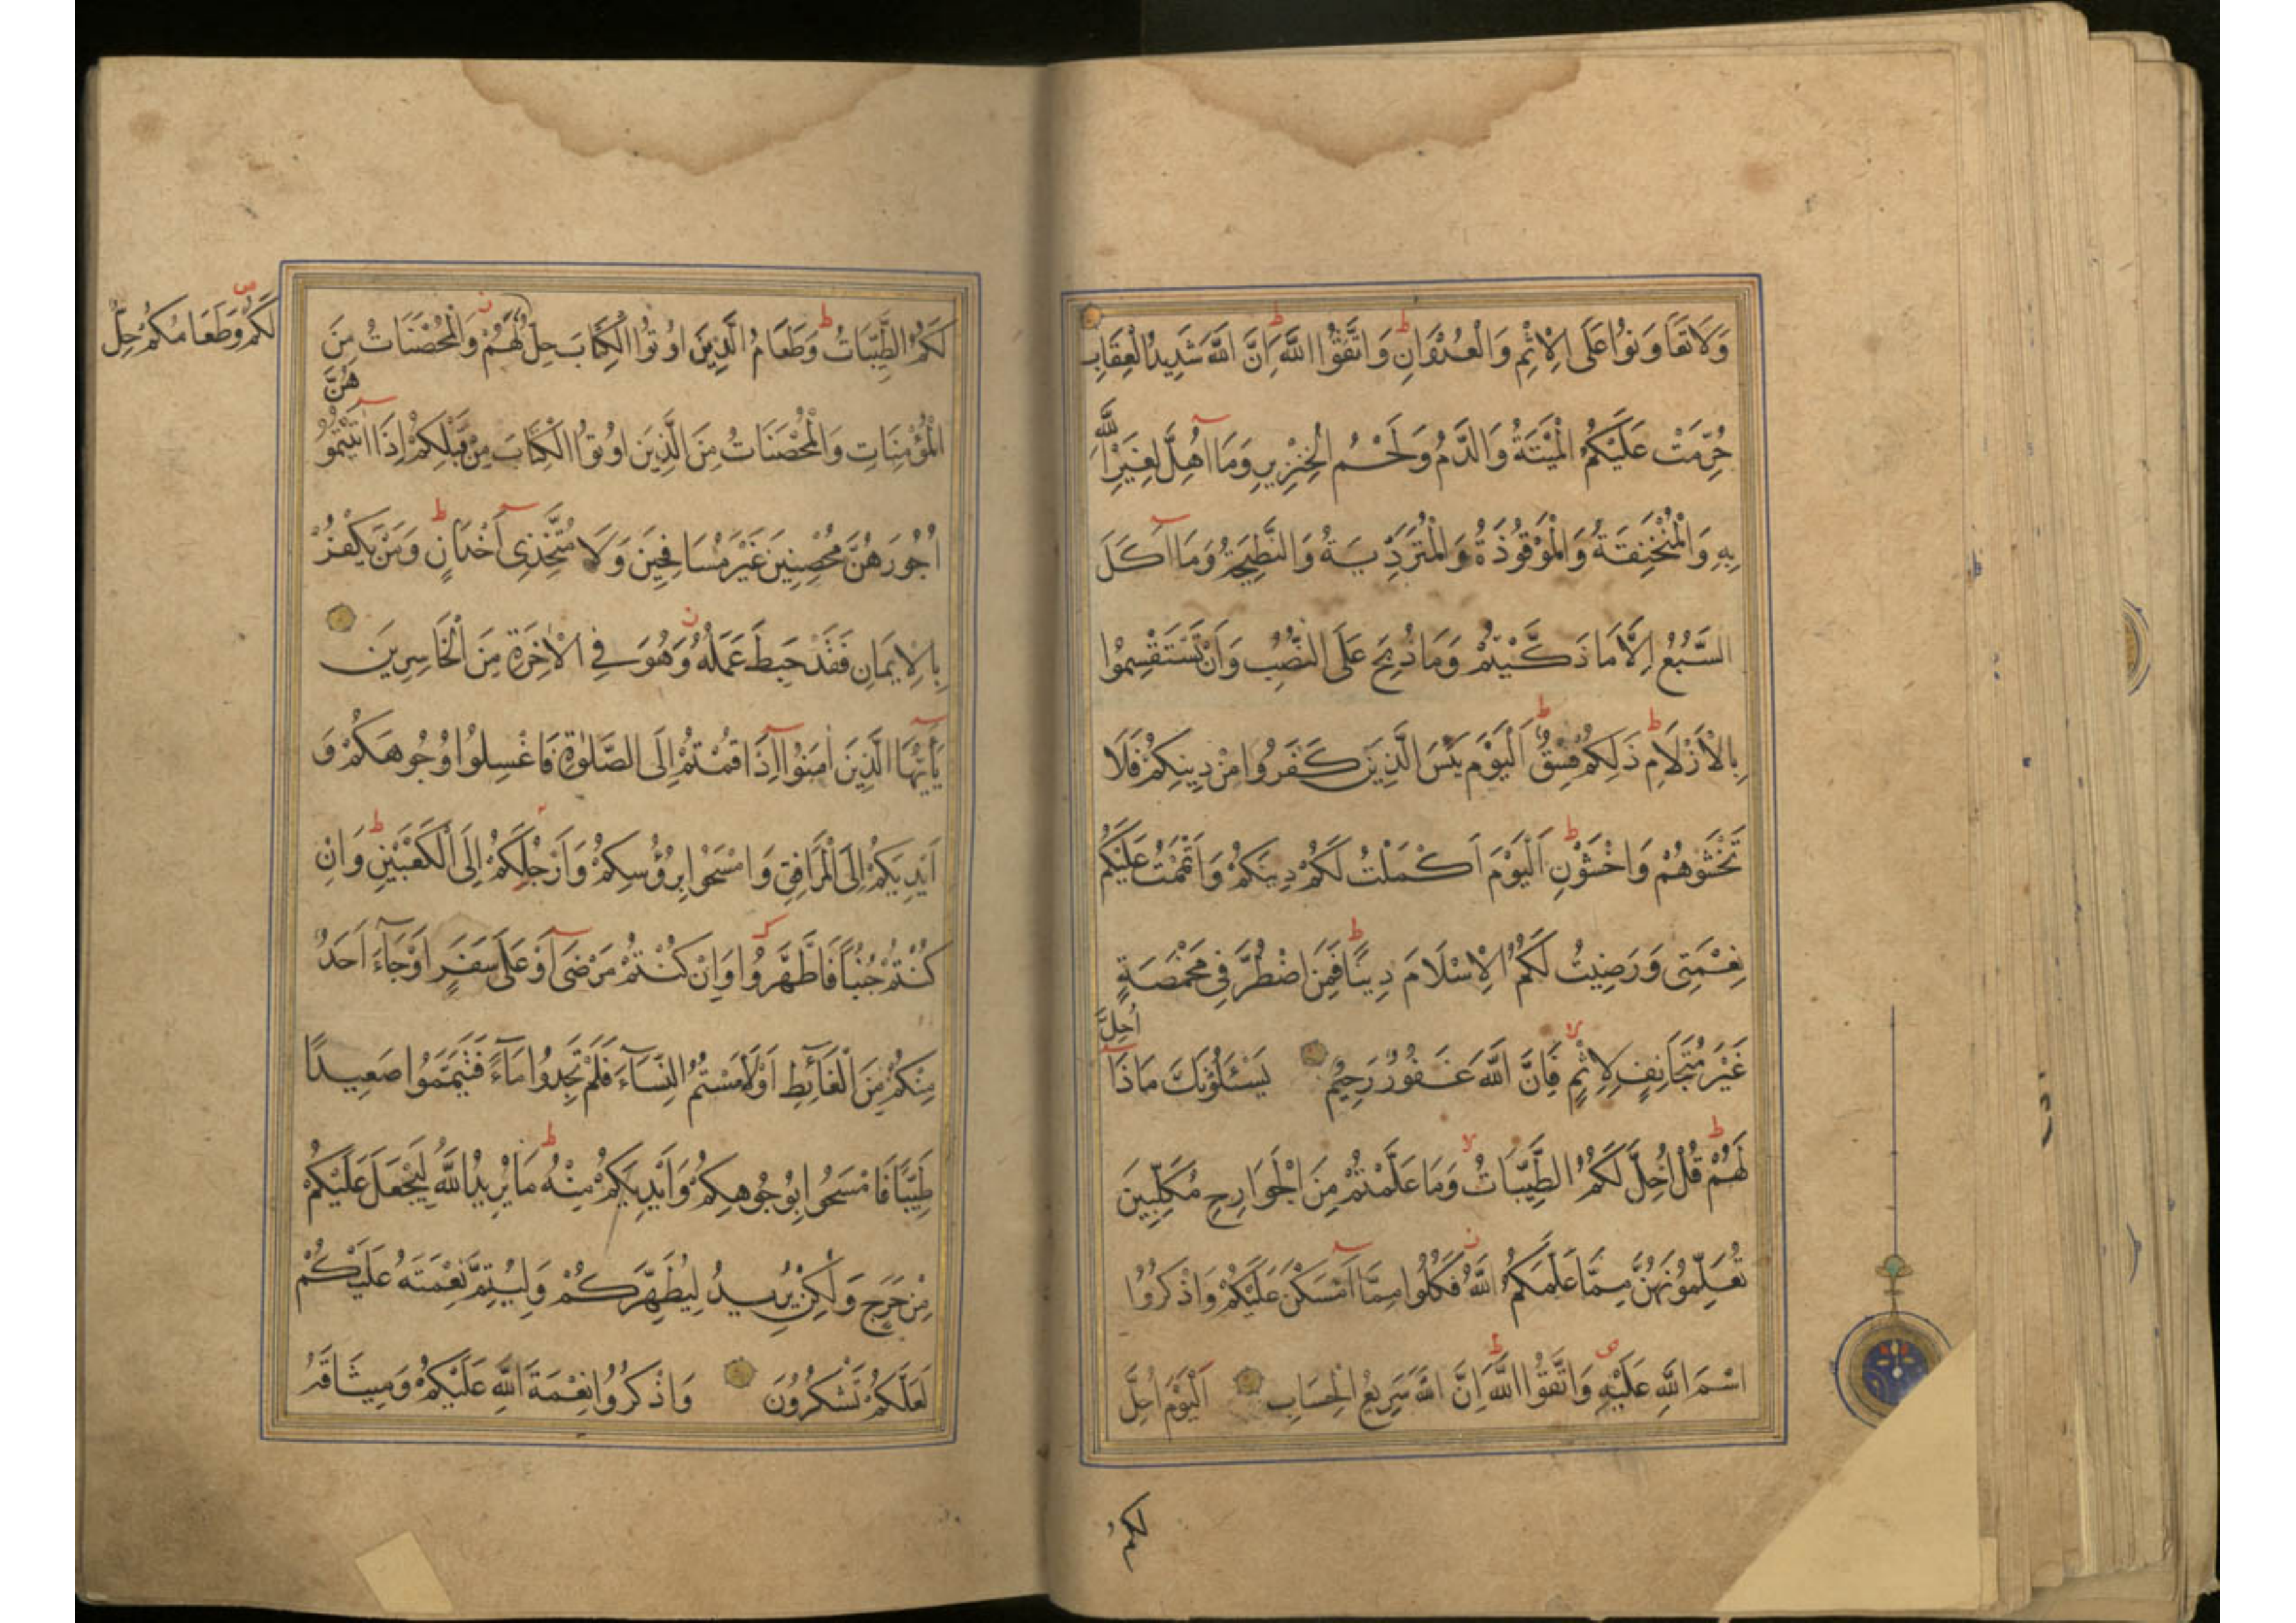 وَلَا تَعَاوَنُوا عَلَى الْاِثْمِ وَالْعُدْوَانِ ط وَاتَّقُوا اللَّهَ ط اِنَّ اللَّهَ شَدِيدُ الْعِقَابِ
حُرِّمَتْ عَلَيْكُمُ الْمَيْتَةُ وَالدَّمُ وَلَحْمُ الْخِنْزِيرِ وَمَا اُهِلَّ لِغَيْرِ اللَّهِ
بِهِ وَالْمُنْخَنِقَةُ وَالْمَوْقُوذَةُ وَالْمُتَرَدِّيَةُ وَالنَّطِيحَةُ وَمَا اَكَلَ
السَّبُعُ اِلَّا مَا ذَكَّيْتُمْ وَمَا ذُبِحَ عَلَى النُّصُبِ وَاَنْ تَسْتَقْسِمُوا
بِالْاَزْلَامِ ط ذَلِكُمْ فِسْقٌ ط اَلْيَوْمَ يَئِسَ الَّذِينَ كَفَرُوا مِنْ دِينِكُمْ فَلَا
تَخْشَوْهُمْ وَاخْشَوْنِ ط اَلْيَوْمَ اَكْمَلْتُ لَكُمْ دِينَكُمْ وَاَتْمَمْتُ عَلَيْكُمْ
نِعْمَتِى وَرَضِيتُ لَكُمُ الْاِسْلَامَ دِينًا ط فَمَنِ اضْطُرَّ فِى مَخْمَصَةٍ
غَيْرَ مُتَجَانِفٍ لِاِثْمٍ لا فَاِنَّ اللَّهَ غَفُورٌ رَحِيمٌ يَسْئَلُونَكَ مَاذَا اُحِلَّ
لَهُمْ ط قُلْ اُحِلَّ لَكُمُ الطَّيِّبَاتُ لا وَمَا عَلَّمْتُمْ مِنَ الْجَوَارِحِ مُكَلِّبِينَ
تُعَلِّمُونَهُنَّ مِمَّا عَلَّمَكُمُ اللَّهُ ز فَكُلُوا مِمَّا اَمْسَكْنَ عَلَيْكُمْ وَاذْكُرُوا
اسْمَ اللَّهِ عَلَيْهِ ص وَاتَّقُوا اللَّهَ ط اِنَّ اللَّهَ سَرِيعُ الْحِسَابِ اَلْيَوْمَ اُحِلَّ
لَكُمُ
لَكُمُ الطَّيِّبَاتُ ط وَطَعَامُ الَّذِينَ اُوتُوا الْكِتَابَ حِلٌّ لَهُمْ ز وَالْمُحْصَنَاتُ مِنَ
لَكُمْ ص وَطَعَامُكُمْ حِلٌّ
الْمُؤْمِنَاتِ وَالْمُحْصَنَاتُ مِنَ الَّذِينَ اُوتُوا الْكِتَابَ مِنْ قَبْلِكُمْ اِذَا اٰتَيْتُمُوهُنَّ
اُجُورَهُنَّ مُحْصِنِينَ غَيْرَ مُسَافِحِينَ وَلَا مُتَّخِذِى اَخْدَانٍ ط وَمَنْ يَكْفُرْ
بِالْاِيمَانِ فَقَدْ حَبِطَ عَمَلُهُ ز وَهُوَ فِى الْاٰخِرَةِ مِنَ الْخَاسِرِينَ
يَٓااَيُّهَا الَّذِينَ اٰمَنُوا اِذَا قُمْتُمْ اِلَى الصَّلٰوةِ فَاغْسِلُوا وُجُوهَكُمْ وَ
اَيْدِيَكُمْ اِلَى الْمَرَافِقِ وَامْسَحُوا بِرُؤُسِكُمْ وَاَرْجُلَكُمْ اِلَى الْكَعْبَيْنِ ط وَاِنْ
كُنْتُمْ جُنُبًا فَاطَّهَّرُوا وَاِنْ كُنْتُمْ مَرْضَى اَوْ عَلَى سَفَرٍ اَوْ جَٓاءَ اَحَدٌ
مِنْكُمْ مِنَ الْغَٓائِطِ اَوْ لَامَسْتُمُ النِّسَٓاءَ فَلَمْ تَجِدُوا مَٓاءً فَتَيَمَّمُوا صَعِيدًا
طَيِّبًا فَامْسَحُوا بِوُجُوهِكُمْ وَاَيْدِيكُمْ مِنْهُ ط مَا يُرِيدُ اللَّهُ لِيَجْعَلَ عَلَيْكُمْ
مِنْ حَرَجٍ وَلَكِنْ يُرِيدُ لِيُطَهِّرَكُمْ وَلِيُتِمَّ نِعْمَتَهُ عَلَيْكُمْ
لَعَلَّكُمْ تَشْكُرُونَ وَاذْكُرُوا نِعْمَةَ اللَّهِ عَلَيْكُمْ وَمِيثَاقَهُ